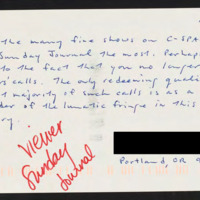 the many fine shows on C-SPA
Sunday Journal the most. Perhap
to the fact that you no longer
calls. The only redeeming quali
t majority of such calls is as a
der of the lunatic fringe in this
ry.
Viewer
Sunday
Journal
Portland, OR 9